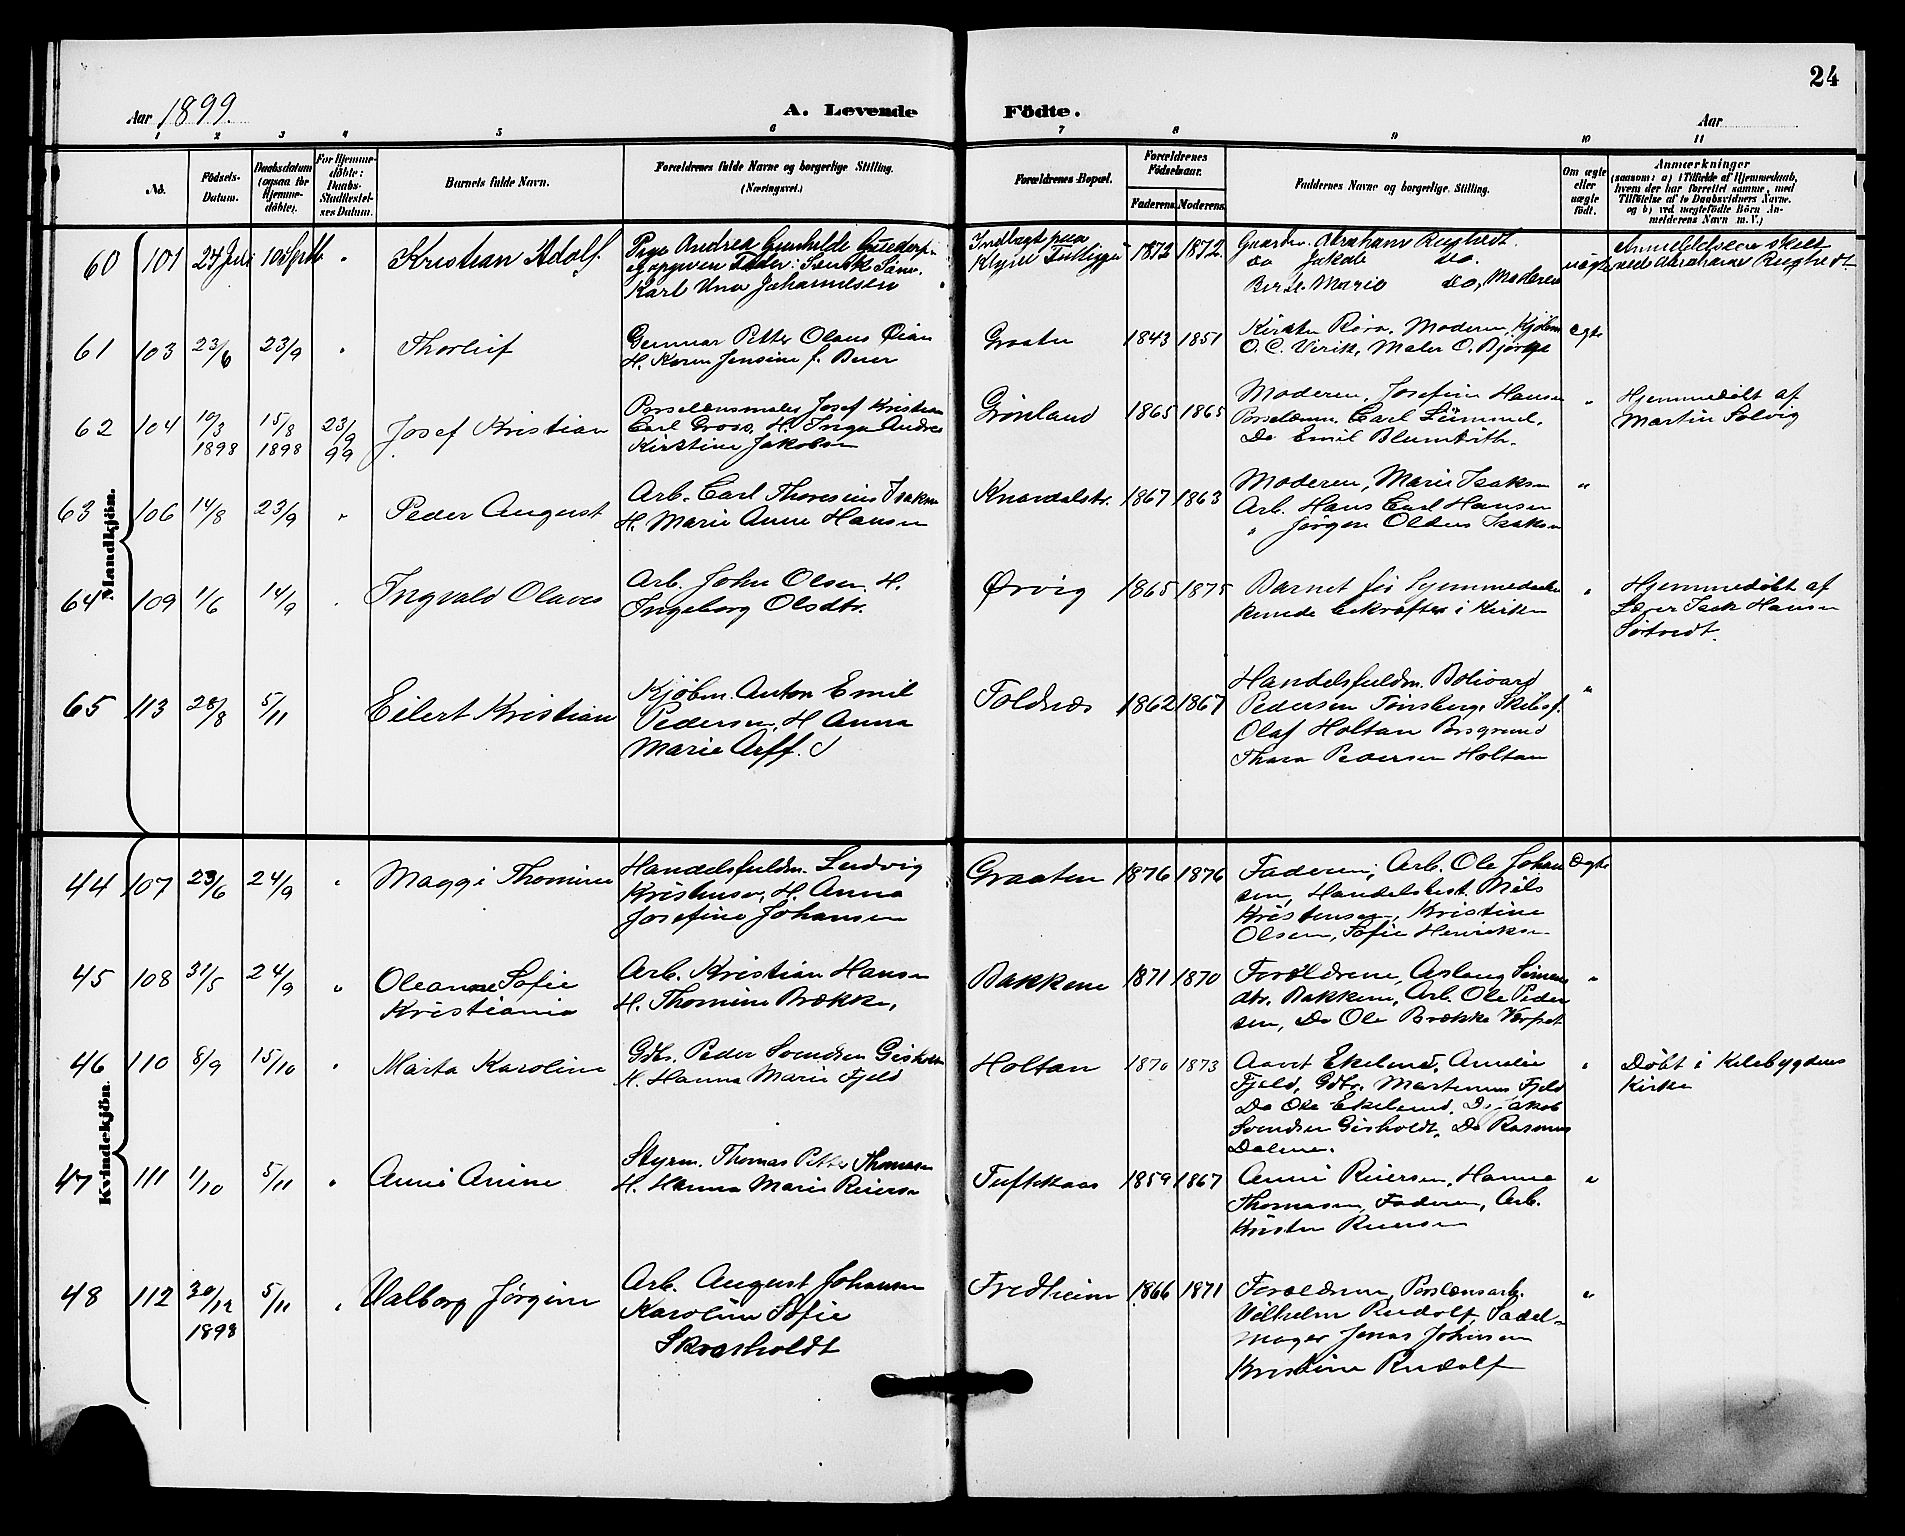 24
Aar 1899.
A. Levende Födte.
Aar
1 2 3 4 5 6 7 8 9 10 11
No.
Födsels-Datum.
Daabsdatum (ogsaa for Hjemme-döbte).
For Hjemme-döbte: Daabs-Stadfæstel-ses Datum.
Barnets fulde Navn.
Forældrenes fulde Navne og borgerlige Stilling. (Næringsvei.)
Forældrenes Bopæl.
Forældrenes Födselsaar.
Faderens. Moderens.
Faddernes Navne og borgerlige Stilling.
Om ægte eller uægte födt.
Anmærkninger
(saasom: a) i Tilfælde af Hjemmedaab,
hvem der har forrettet samme, med
Tilföielse af to Daabsvidners Navne.
og b) ved uægtefödte Börn An-
melderens Navn m. V.)
Mandkjön.
60 101 24 10 Septb " Kristian Adolf.
Pige Andrea Gunhilde
opgiven Fader: Svensk
Karl Johannesen
Indlagt paa
1872 1872.
Abraham
Do Jakob Do.
Marie Do, Moderen
uægte
61 103 23/6 23/9 " Thorleif
Gunnar Petter Olaus Øian
H. Karen Jensine f. Beier
Graaten 1843 1851
Kirsten Røra, Moderen, Kjøbm
O. C. Virik, Maler O. Bjørge
egte
62 104 10/3 1898 15/8 1898 23/9 99 Josef Kristian
Porselænsmaler Josef Kristian
Carl Gross, H. Inga Andrea
Kirstine Jakobsen
Grønland 1865 1865
Moderen, Josefine Hansen
Porselænm. Carl Lümmel,
Do Emil
"
Hjemmedøbt af
Martin Solvig
63 106 14/8 23/9 " Peder August
Arb. Carl Thoresius Isaksen
H. Marie Anne Hansen
Knardalstr. 1867 1863
Moderen, Marie Isaksen
Arb. Hans Carl Hansen
" Jørgen Isaksen
"
64 109 1/6 14/9 Ingvald Olaves
Arb. John Olsen H.
Ingeborg Olsdtr.
Ørvig 1865 1875
Barnet før
kunde bekræftes i Kirken
"
Hjemmedøbt af
Lærer Isak Hansen
Søtvedt.
65 113 28/8 5/11 Eilert Kristian
Kjøbm. Anton Emil
Pedersen, H Anna
Marie Arff.
Foldnæs 1862 1867
Handelsfuldm. Bolivard
Pedersen Tønsberg, Skibsf.
Olaf Holtan Porsgrund
Thora Pedersen Holtan
"
Kvindekjön.
44 107 23/6 24/9 " Maggi Thomine
Handelsfuldm. Ludvig
Kristensen, H. Anna
Josefine Johansen
Graaten 1876 1876
Faderen, Arb. Ole Johan
sen, Handelsbest. Niels
Kristensen, Kristine
Olsen, Sofie Henriksen
Ægte
45 108 31/5 24/9 " Oleanne Sofie
Kristiania
Arb. Kristian Hansen
H. Thomine Brække,
Bakkene 1871 1870
Forældrene, Aslaug Simens
dtr. Bakkene, Arb. Ole Peder
sen, Do Ole Brække
"
46 110 8/9 15/10 " Marta Karoline
Gdbr. Peder Svendsen Gisholt
H. Hanna Marie Fjeld
Holtan 1870 1873
Ekelund, Amelie
Fjeld, Gdbr. Martinus Fjeld
Do Ole Ekelund, Do Jakob
Svendsen Gisholdt, Do Rasmus
Dalene.
"
Døbt i Eidsbygdens
Kirke
47 111 1/10 5/11 " Anne Anine
Styrm. Thomas Petter Thomasen
H. Hanna Marie Reiersen
Tuftekaas 1859 1867
Anne Reiersen, Hanna
Thomasen, Faderen, Arb.
Kristen Reiersen
"
48 112 30/12 1898 5/11 " Valborg Jørgine
Arb. August Johansen
Karoline Sofie
Skrasholdt
Fredheim 1866 1871
Forældrene, Porslensarb.
Vilhelm Rudolf, Sadel-
mager Jonas Johnsen
Kristine Rudolf
"